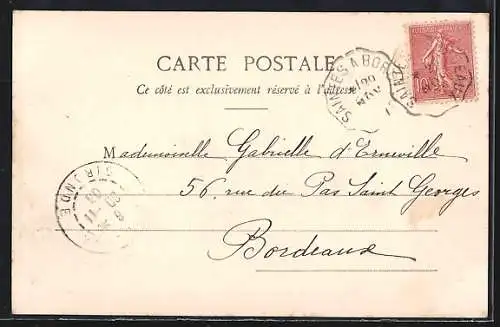 CARTE POSTALE
Ce côté est exclusivement réservé à l'adresse
SAINTES A BOR
Mademoiselle Gabrielle d'Erneville
56, rue du Pas Saint Georges
Bordeaux
GIRONDE